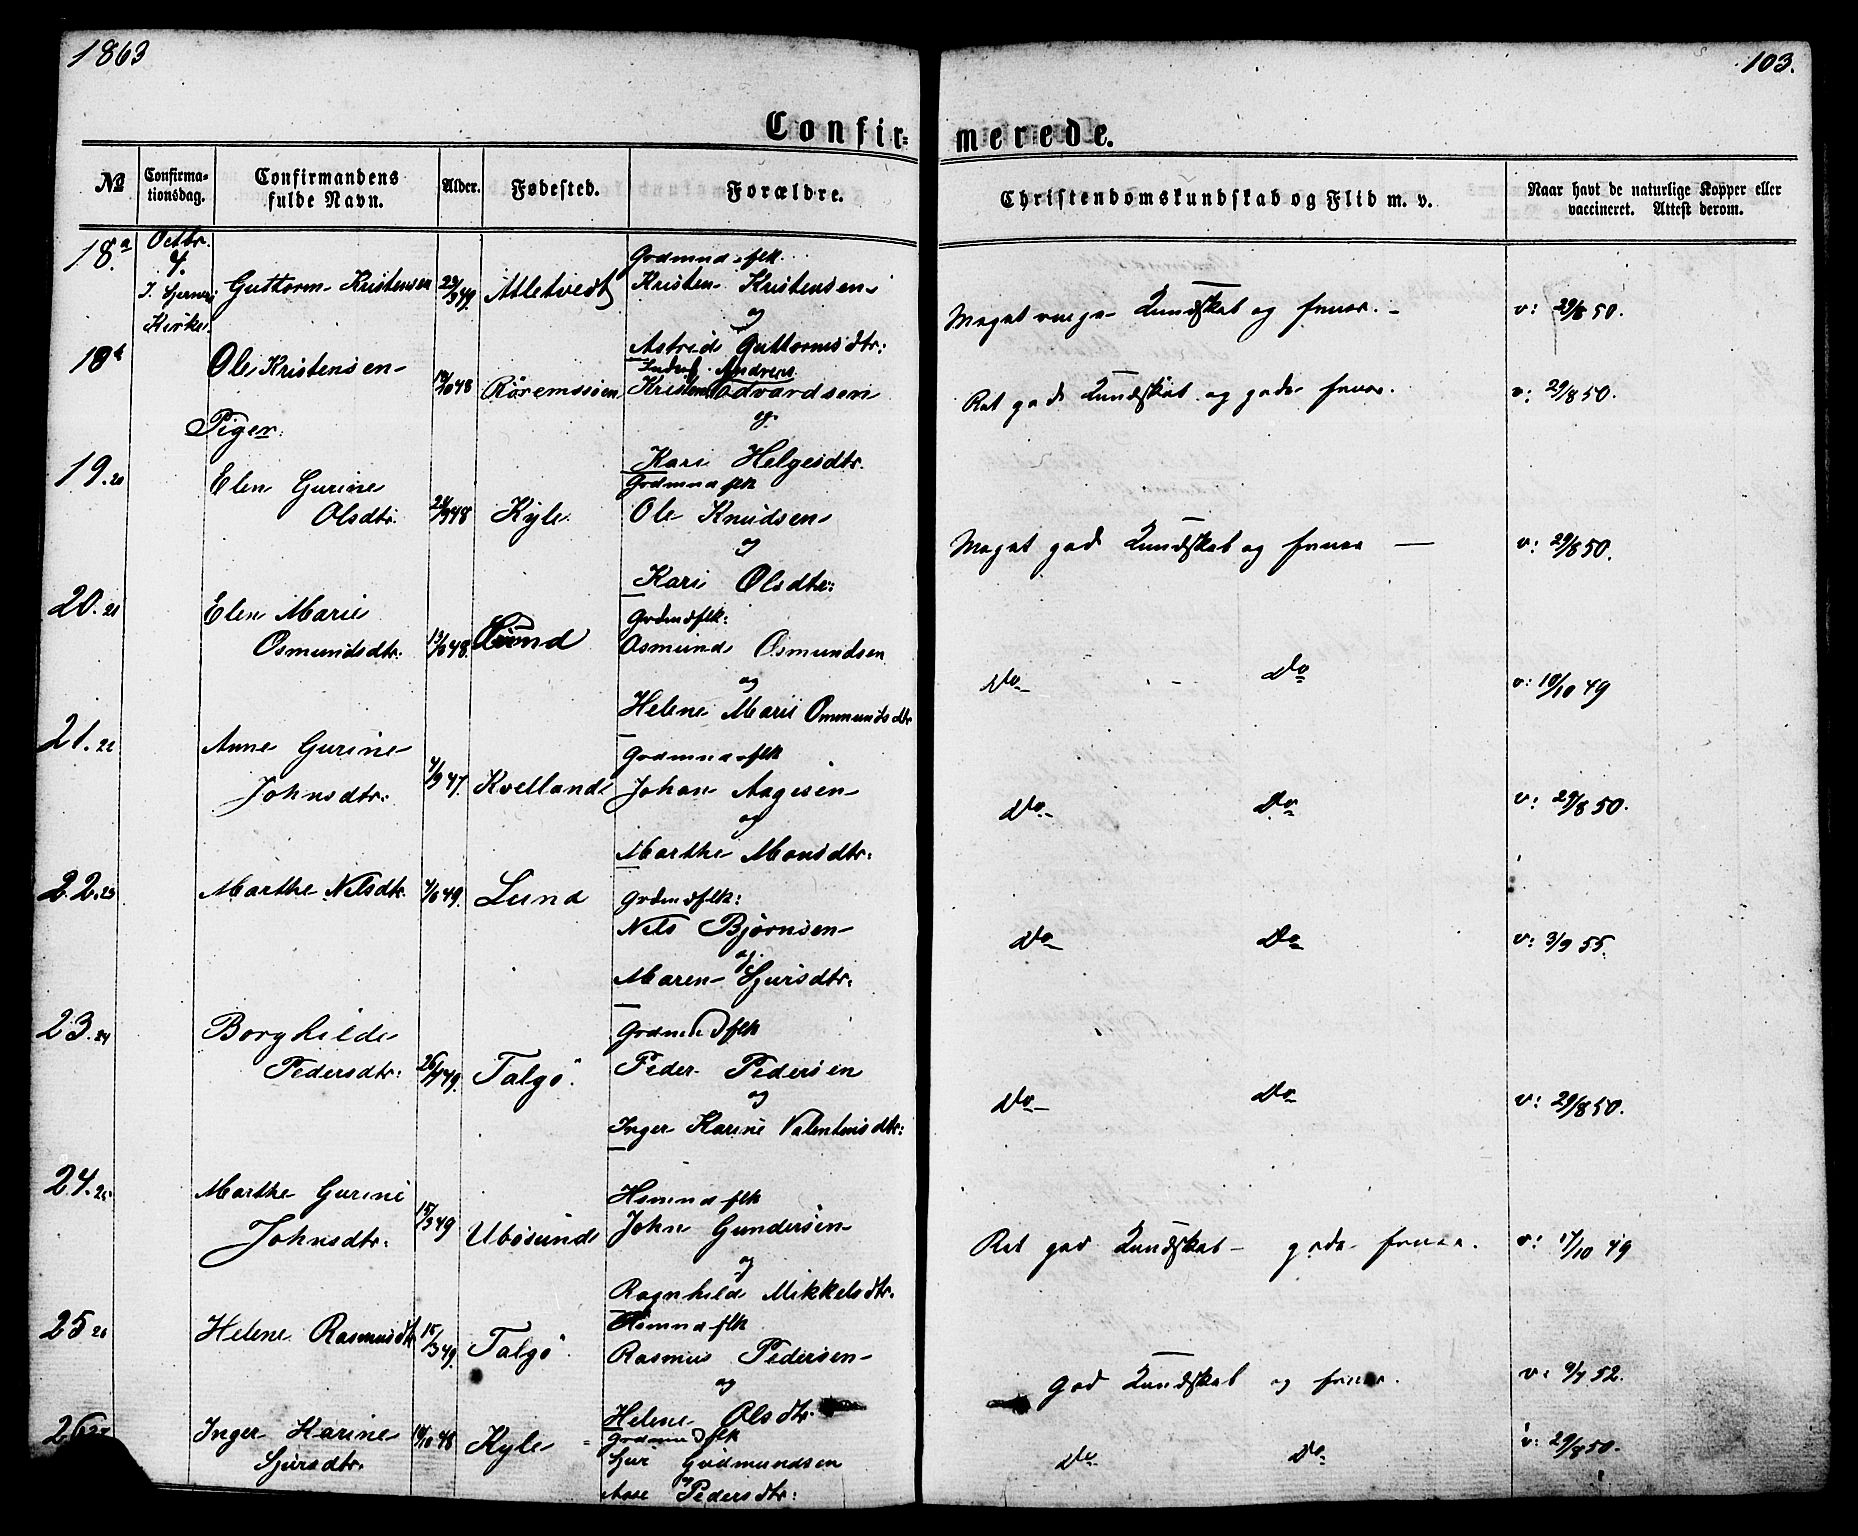 1863
103.
Confir=
merede.
No
Confirma-
tionsdag.
Confirmandens
fulde Navn.
Alder.
Fødested.
Forældre.
Christendomskundskab og Flid m. v.
Naar havt de naturlige Kopper eller
vaccineret. Attest derom.
18.a
Octbr.
4.
Kirke
Guttorm Kristensen
Grdmndsflk
Kristen Kristensen
og
Astrid Guttormsdtr:
Meget Kundskab og
v: 29/8 50.
18
Ole Kristensen
Andreas
Kristen
og
Kari Helgesdtr.
Ret god Kundskab og gode
v: 29/8 50.
Piger.
19. 20
Elen Gurine
Olsdtr.
28/9 48
Kyle
Grdmndsflk
Ole Knudsen
og
Kari Olsdtr:
Meget god Kundskab og
v: 29/8 50.
20. 21
Elen Marie
Osmundsdtr.
Grdmdsflk:
Osmund Osmundsen
og
Helene Marie Ommundsdtr
Do
Do
v: 10/10 49
21. 22
Anne Gurine
Johnsdtr.
4/9 47.
Kvelland
Grdmndsflk
Johan Aagesen
og
Marthe Monsdtr:
Do
Do
v: 29/8 50.
22. 23
Marthe Nilsdtr.
49.
Lund
Grdmdsflk:
Nils Bjørnsen
og
Maren Sjursdtr:
Do
Do
v: 3/9 55.
23. 24
Borghilde
Pedersdtr:
49.
Talgø.
Grdmndsflk
Peder Pedersen
og
Inger Karine Valentinsdtr:
Do
Do
v: 29/8 50.
24. 25
Marthe Gurine
Johnsdtr.
15/3 49
Ubøsund
Hsmndsflk
John Gundersen
og
Ragnhild Mikkelsdtr.
Ret god Kundskab gode
v: 17/10 49
25 26
Helene Rasmusdtr
15/3 49.
Talgø.
Hsmndsflk
Rasmus Pedersen
og
Helene Olsdtr.
God Kundskab og
v: 9/7 52.
26 27
Inger Karine
Sjursdtr.
18/10 48
Kyle
Grdmndsflk
Sjur Gudmundsen
og
Aase Pedersdtr:
Do
Do
v: 29/8 50.